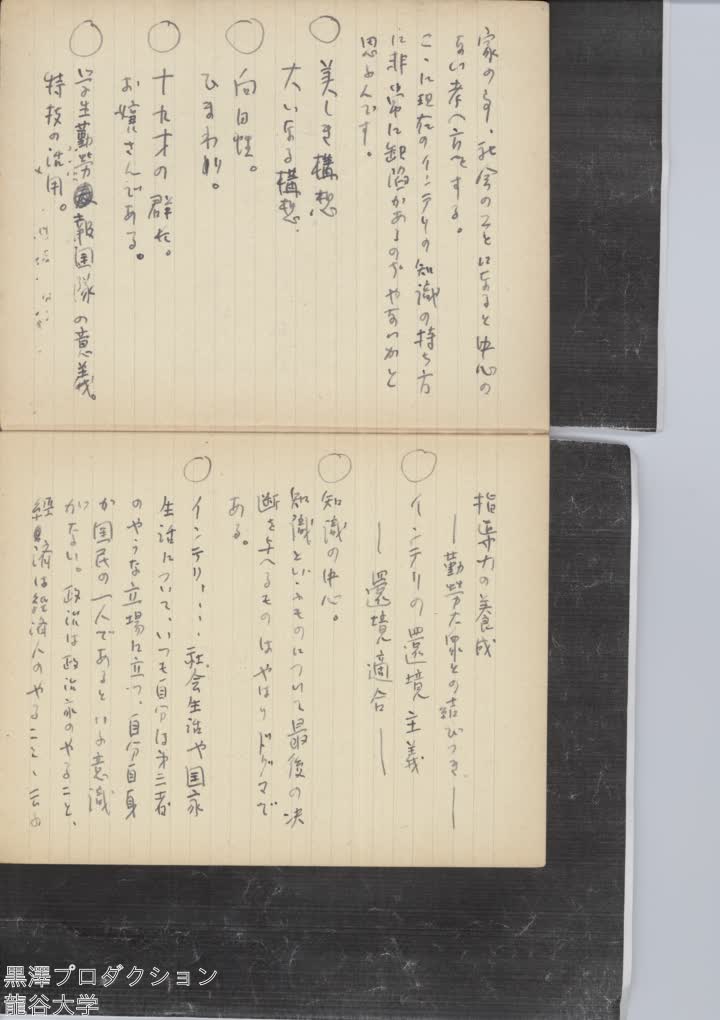 家のこと、社会のことになると中心の
ない考へ方をする。
こゝに現在のインテリの知識の持ち方
に非常に缺陥があるのぢやないかと
思ふんです。
○ 美しき構想
大いなる構想.
○ 向日性。
ひまわり。
○ 十九才の群れ。
お嬢さんである。
○ 学生勤労報国隊の意義。
特技の活用。
指導力の養成
―勤労大衆との結びつき―
○ インテリの環境主義
―環境適合―
○ 知識の中心。
知識といふものについて最後の決
断を与へるものはやはりドグマで
ある。
○ インテリ、・・・社会生活や国家
生活について、いつも自分は第三者
のやうな立場に立つ、自分自身
が国民の一人であるといふ意識
がない。政治は政治家のやること、
経済は経済人のやること、云ふ
黒澤プロダクション
龍谷大学